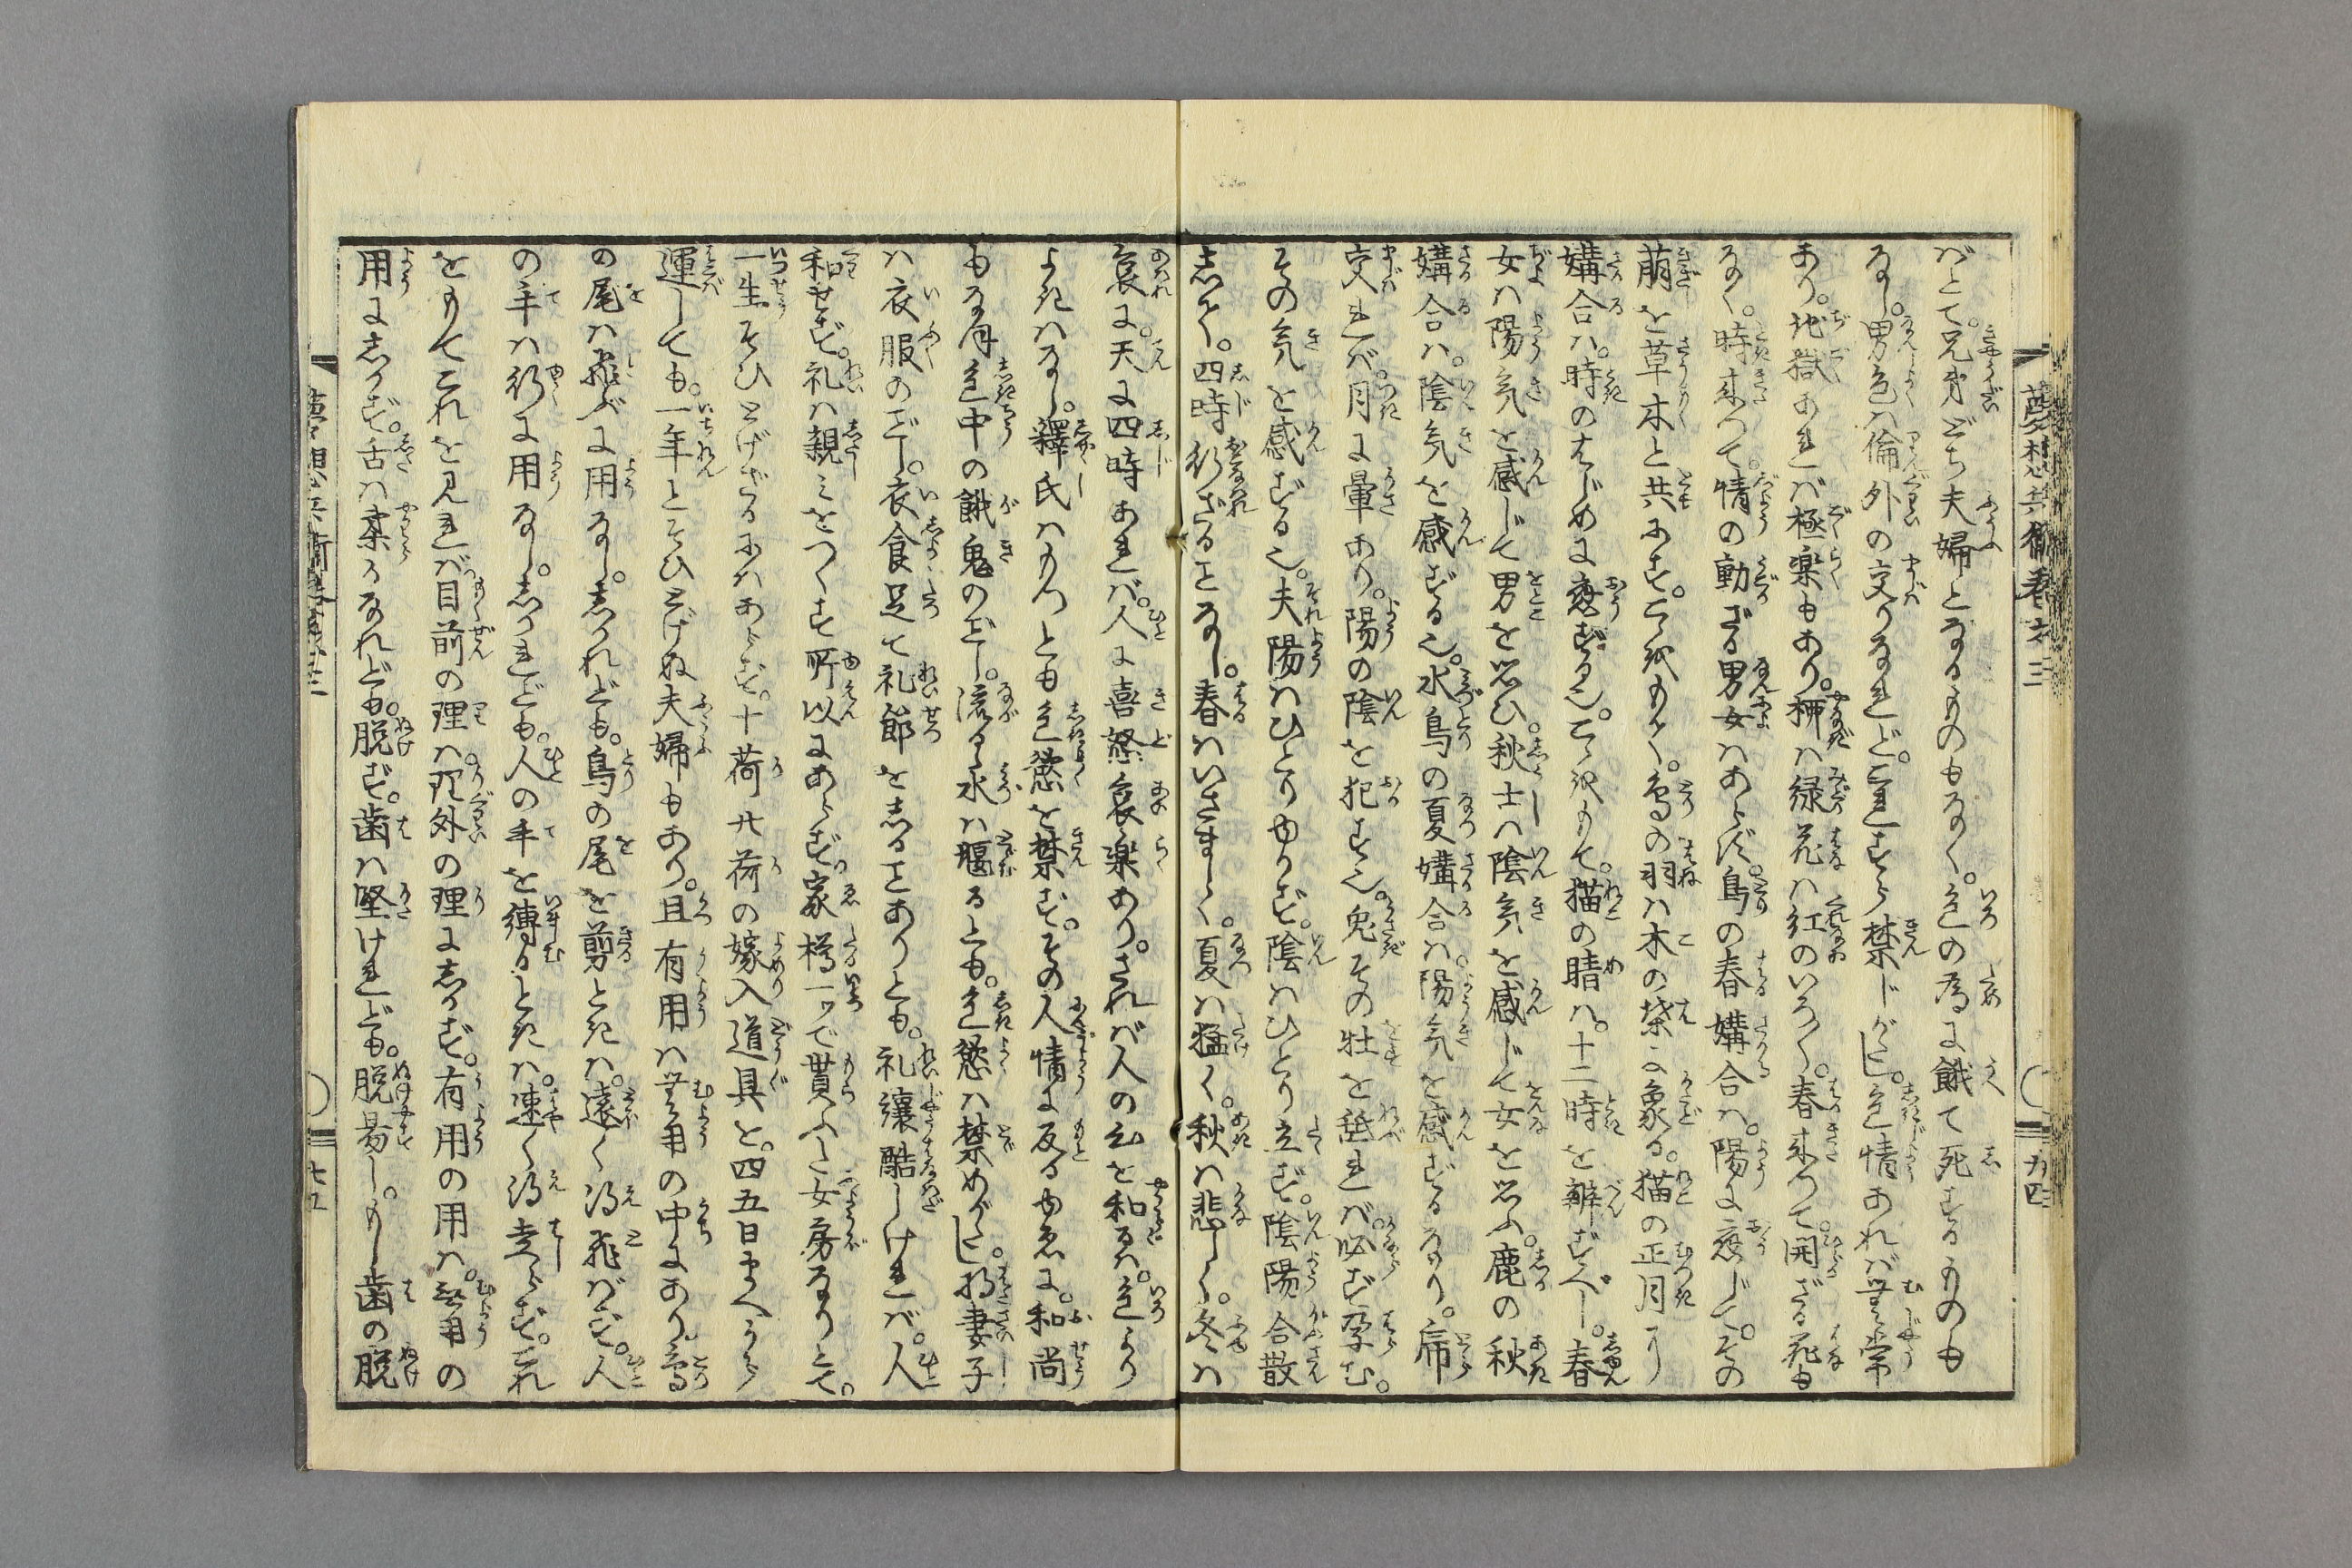 夢想兵衛 巻之三
ばとて。兄弟どち夫婦となるものもなく。色の為に餓て死するものも
なし。男色は倫外の交りなれど。これすら禁じがたし。色情あれば無常
あり。地獄あれば極楽もあり。柳は緑花は紅のいろ〳〵。春来つて開ざる花も
なく。時来つて情の動ざる男女はあらじ。鳥の春媾合は。陽に応じて。その
萠を草木と共にす。こゝをもて。鳥の羽は木の葉に象る。猫の正月
媾合は。時のはじめに応ずる也。こゝをもて。猫の睛は。十二時を辨ずべし。春
女は陽気を感じて男を思ひ。秋士は陰気を感じて女を思ふ。鹿の秋
媾合は。陰気を感ずる也。水鳥の夏媾合は。陽気を感ずるなり。帍
交れば月に暈あり。陽の陰を犯す也。兎その牡を舐れば必ず孕む。
その気を感ずる也。夫陽はひとりゆかず。陰はひとり立ず。陰陽合散
して。四時行ざることなし。春はいさましく。夏は猛く。秋は悲しく。冬は
哀に。天に四時あれば。人に喜怒哀楽あり。されば人の心を和るは。色より
よきはなし。釋氏はもつとも色慾を禁ず。その人情に反るゆゑに。和尚
もな色中の餓鬼のごとし。流るゝ水は堰るとも。色慾は禁めがたし。妻子
は衣服のごとし。衣食足て礼節をしることありとも。礼讓酷しければ。人
和せず。礼は親しみをつくす所以にあらず。家樽一ツで貰ふた女房なりとて。
一生そひとげざるにはあらず。十荷廿荷の嫁入道具を。四五日まへから
運しても。一年とそひとげぬ夫婦もあり。且有用は無用の中にあり。鳥
の尾は飛ぶに用なし。しかれども。鳥の尾を剪ときは。遠く得飛ばず。人
の手は行に用なし。しかれども。人の手を縛るときは。速く得走らず。これ
をもてこれを見れば目前の理は理外の理にしかず。有用の用は。無用の
用にしかず。舌は柔かなれども。脱ず。歯は堅けれども。脱易し。もし歯の脱